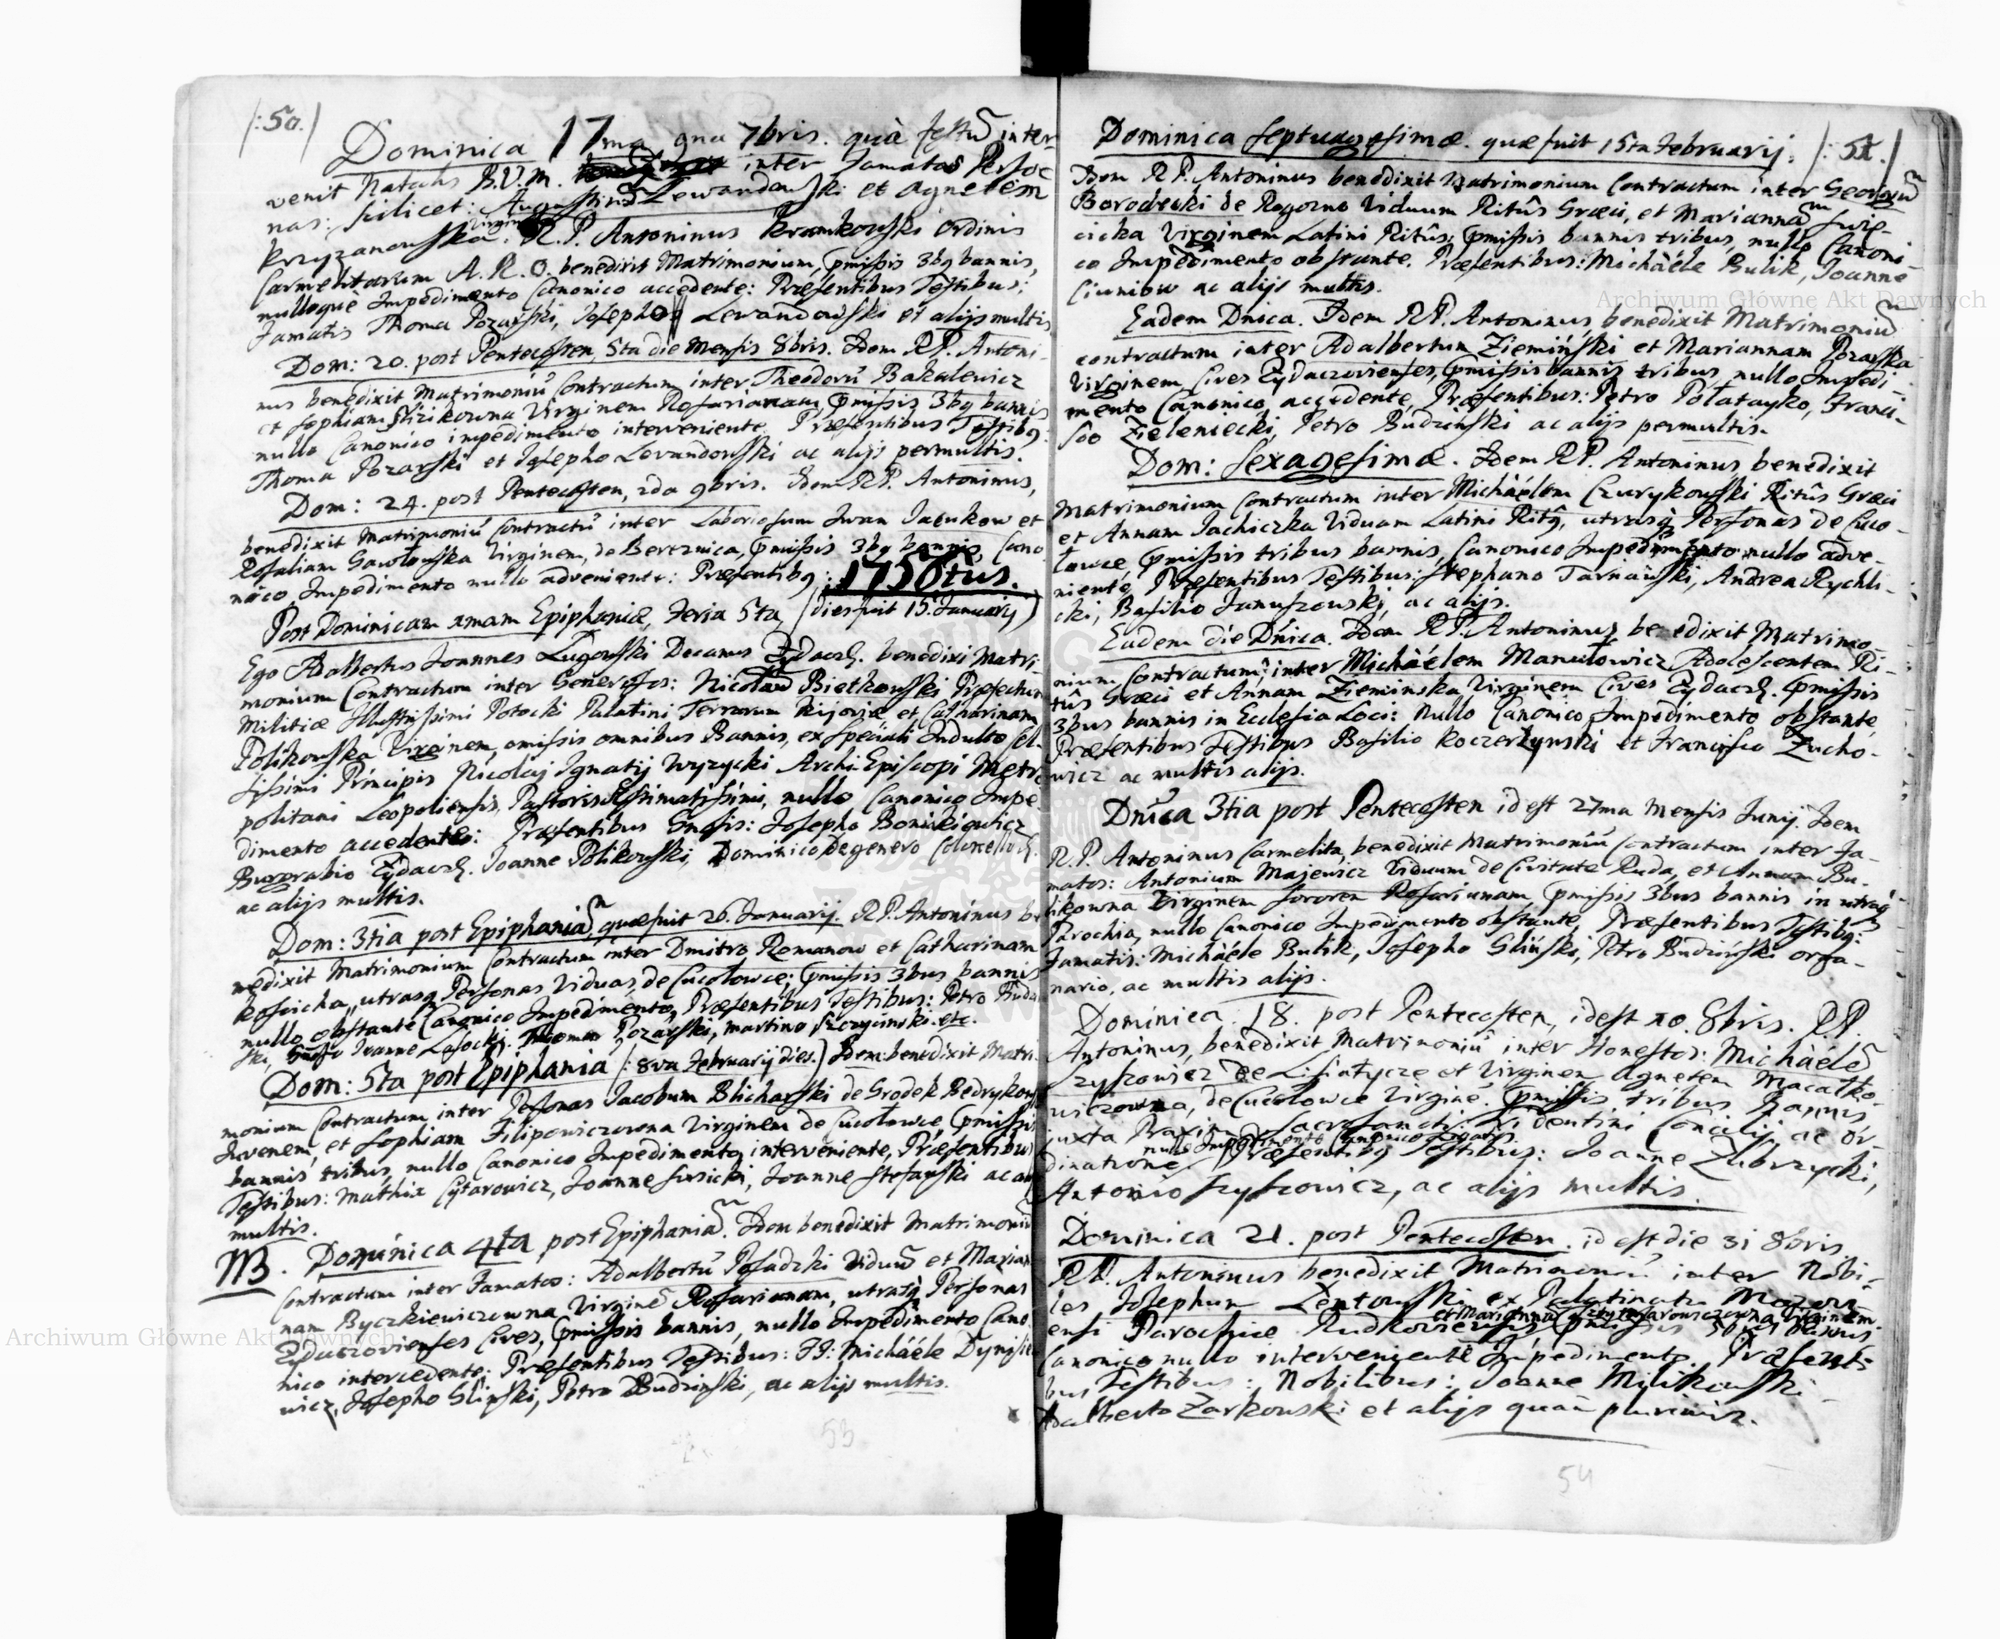 /:50./
Dominica 17ma qua 7bris. quà festũ inter-
venit Natalis B.V.M. inter famatas Perso
nas: scilicet: Augustinũ Lewandowski et Agnetem
Krzyzanowska. Virginem R.P. Antoninus Kramkowski Ordinis
Carmelitarum A.R.O. benedixit Matrimonium, p̱missis 3bg bannis,
nulloque Impedimento Canonico accedente: Præsentibus Testibus:
Famatis Thoma Pozarski, Josepho Levandowski et alijs multis
Dom: 20. post Pentecosten, 5ta die Mensis 8bris. Idem R.P. Antoni-
nus benedixit Matrimoniũ Contractum inter Theodorũ Bakalewicz
et Sophiam Virginem Rosarianam, p̱missis 3bg bannis
nullo Canonico impedimento interveniente. Præsentibus Testibg:
Thoma Pozarski et Josepho Levandowski ac alijs permultis.
Dom: 24. post Pentecosten, 2da 9bris. Idem R.P. Antoninus,
benedixit Matrimoniũ Contractũ inter Laboriosum Iwan Jacukow et
Rosaliam Gawłowska Virginem, de Bereznica, p̱missis 3bg bannis, Cano
nico Impedimento nullo adveniente: Præsentibg:
1750tus.
Post Dominicam 1mam Epiphaniæ, Feria 5ta, /dies fuit 15. Januarij)
Ego Adalbertus Joannes Ługowski Decanus Zydacz. benedixi Matri-
monium Contractum inter Generosos: Nicolaũ Bietkowski Præfectum
Militiæ Illustrissimi Potocki Palatini Terrarum Kijoviæ et Catharinam
Polikowska Virginem, omissis omnibus Bannis, ex speciali Indulto Cel-
sissimi Principis Nicolaj Ignatij Wyzycki Archi-Episcopi Metro
politani Leopoliensis, Pastoris Æstimatissimi, nullo Canonico Impe-
dimento accedente: Præsentibus Gnosis: Josepho Bonikiewicz
Burgrabio Zydacz. Joanne Polikowski, Dominico Degenero
ac alijs multis.
Dom: 3tia post Epiphaniã, quæ fuit 26. Januarij. R.P. Antoninus be
nedixit Matrimonium Contractum inter Dmitro Romanow et Catharinam
Kosicka, utrasq Personas Viduas, de Cucołowce, p̱missis 3bus bannis
nullo obstante Canonico Impedimento, Præsentibus Testibus: Petro Budzin
ski, Joanne Lasocki, Thoma Pozarski, Martino Szczycinski. etc.
Dom: 5ta post Epiphania (:8va Februarij dies:) Idem benedixit Matri-
monium Contractum inter Personas Jacobum Blicharski de Grodek Bedrykow
Juvenem, et Sophiam Filipowiczowna Virginem de Cucołowce, p̱missis
bannis tribus, nullo Canonico Impedimento interveniente, Præsentibus
Testibus: Mathia Cytarowicz, Joanne Susicki, Joanne Stefanski ac alijs
multis.
NB. Dominica 4ta post Epiphaniã. Idem benedixit Matrimoniũ
Contractum inter Famatos: Adalbertũ Posadzki Viduũ et Marian
nam Byczkiewiczowna Virginẽ Rosarianam, utrasq Personas
Zydaczovienses Cives, p̱missis bannis, nullo Impedimento Cano
nico intercedente. Præsentibus Testibus: FF: Michäéle Dynisie
wicz, Josepho Slinski, Petro Budzinski, ac alijs multis.
53
Dominica Septuagesimæ. quæ fuit 15ta Februarij. /:51./
Idem R.P. Antoninus benedixit Matrimonium Contractum inter Georgiũ
Borodecki de Rogozno Viduum Ritûs Græci, et Mariannam Swię-
cicka Virginem Latini Ritûs; p̱missis bannis tribus, nullo Canoni-
co Impedimento obstante. Præsentibus: Michäéle Bulik, Joanne
Ciuniow ac alijs multis.
Eadem Dnica. Idem R.P. Antoninus benedixit Matrimoniũ
contractum inter Adalbertum Ziemiński et Mariannam Pozarska
Virginem, Cives Zydaczovienses, p̱missis bannis tribus nullo Impedi-
mento Canonico accedente, Præsentibus: Petro Połatayko, Franci-
sco Zieleniecki, Petro Budzinski ac alijs permultis.
Dom: Sexagesimæ. Idem R.P. Antoninus benedixit
Matrimonium Contractum inter Michäélem Czurykowski Ritûs Græci
et Annam Jachiczka Viduam Latini Ritg, utrasq Personas de Cuco-
łowce, p̱missis tribus bannis, Canonico Impedimento nullo adve-
niente, Præsentibus Testibus: Stephano Tarnawski, Andrea Rychli-
cki, Basilio Januszowski, ac alijs.
Eadem die Dnica. Idem R.P. Antoninus benedixit Matrimo-
nium Contractum inter Michäélem Manułowicz Adolescentem Ri-
tûs Græci et Annam Zieminska Virginem Cives Zydacz. p̱missis
3bus bannis in Ecclesia Loci: Nullo Canonico Impedimento obstante,
Præsentibus Testibus Basilio Koczerzynski et Francisco Zucho-
wicz ac multis alijs.
Dnica 3tia post Pentecosten id est 27ma Mensis Junij. Idem
R.P. Antoninus Carmelita, benedixit Matrimoniũ Contractum inter Fa-
matos: Antonium Majewicz Viduum de Civitate Ruda, et Annam Bu-
likowna Virginem Sororem Rosarianam, p̱missis 3bus bannis in utraq
Parochia, nullo Canonico Impedimento obstante, Præsentibus Testibg:
Famatis: Michäéle Bulik, Josepho Sliński, Petro Budziński orga-
nario, ac multis alijs.
Dominica 18. post Pentecosten, id est 10. 8bris. R.P.
Antoninus, benedixit Matrimoniũ inter Honestos: Michäélẽ
Szyszowicz de Lisiatycze et Virginem Agnetem Macałko-
wiczowna, de Cucołowce Virginẽ. p̱missis tribus Bannis
juxta Praxim Sacrosancti Tridentini Concilij, ac or-
dinatione, nullo Impedimento Canonico Præsentibg Testibus: Joanne Zubrzycki,
Antonio Szyszowicz, ac alijs multis.
Dominica 21. post Pentecosten. id est die 31 8bris
R.P. Antoninus benedixit Matrimoniũ inter Nobi-
les Josephum Lentowski ex Palatinatu Mazovi-
ensi Parochiæ Rudkoviensis et Mariannam Virginem p̱missis 3bus bannis
Canonico nullo interveniente Impedimento. Præsenti-
bus Testibus: Nobilibus: Joanne Milikowski
Adalberto Zarkowski et alijs quàm plurimis.
54
Archiwum Główne Akt Dawnych
Archiwum Główne Akt Dawnych